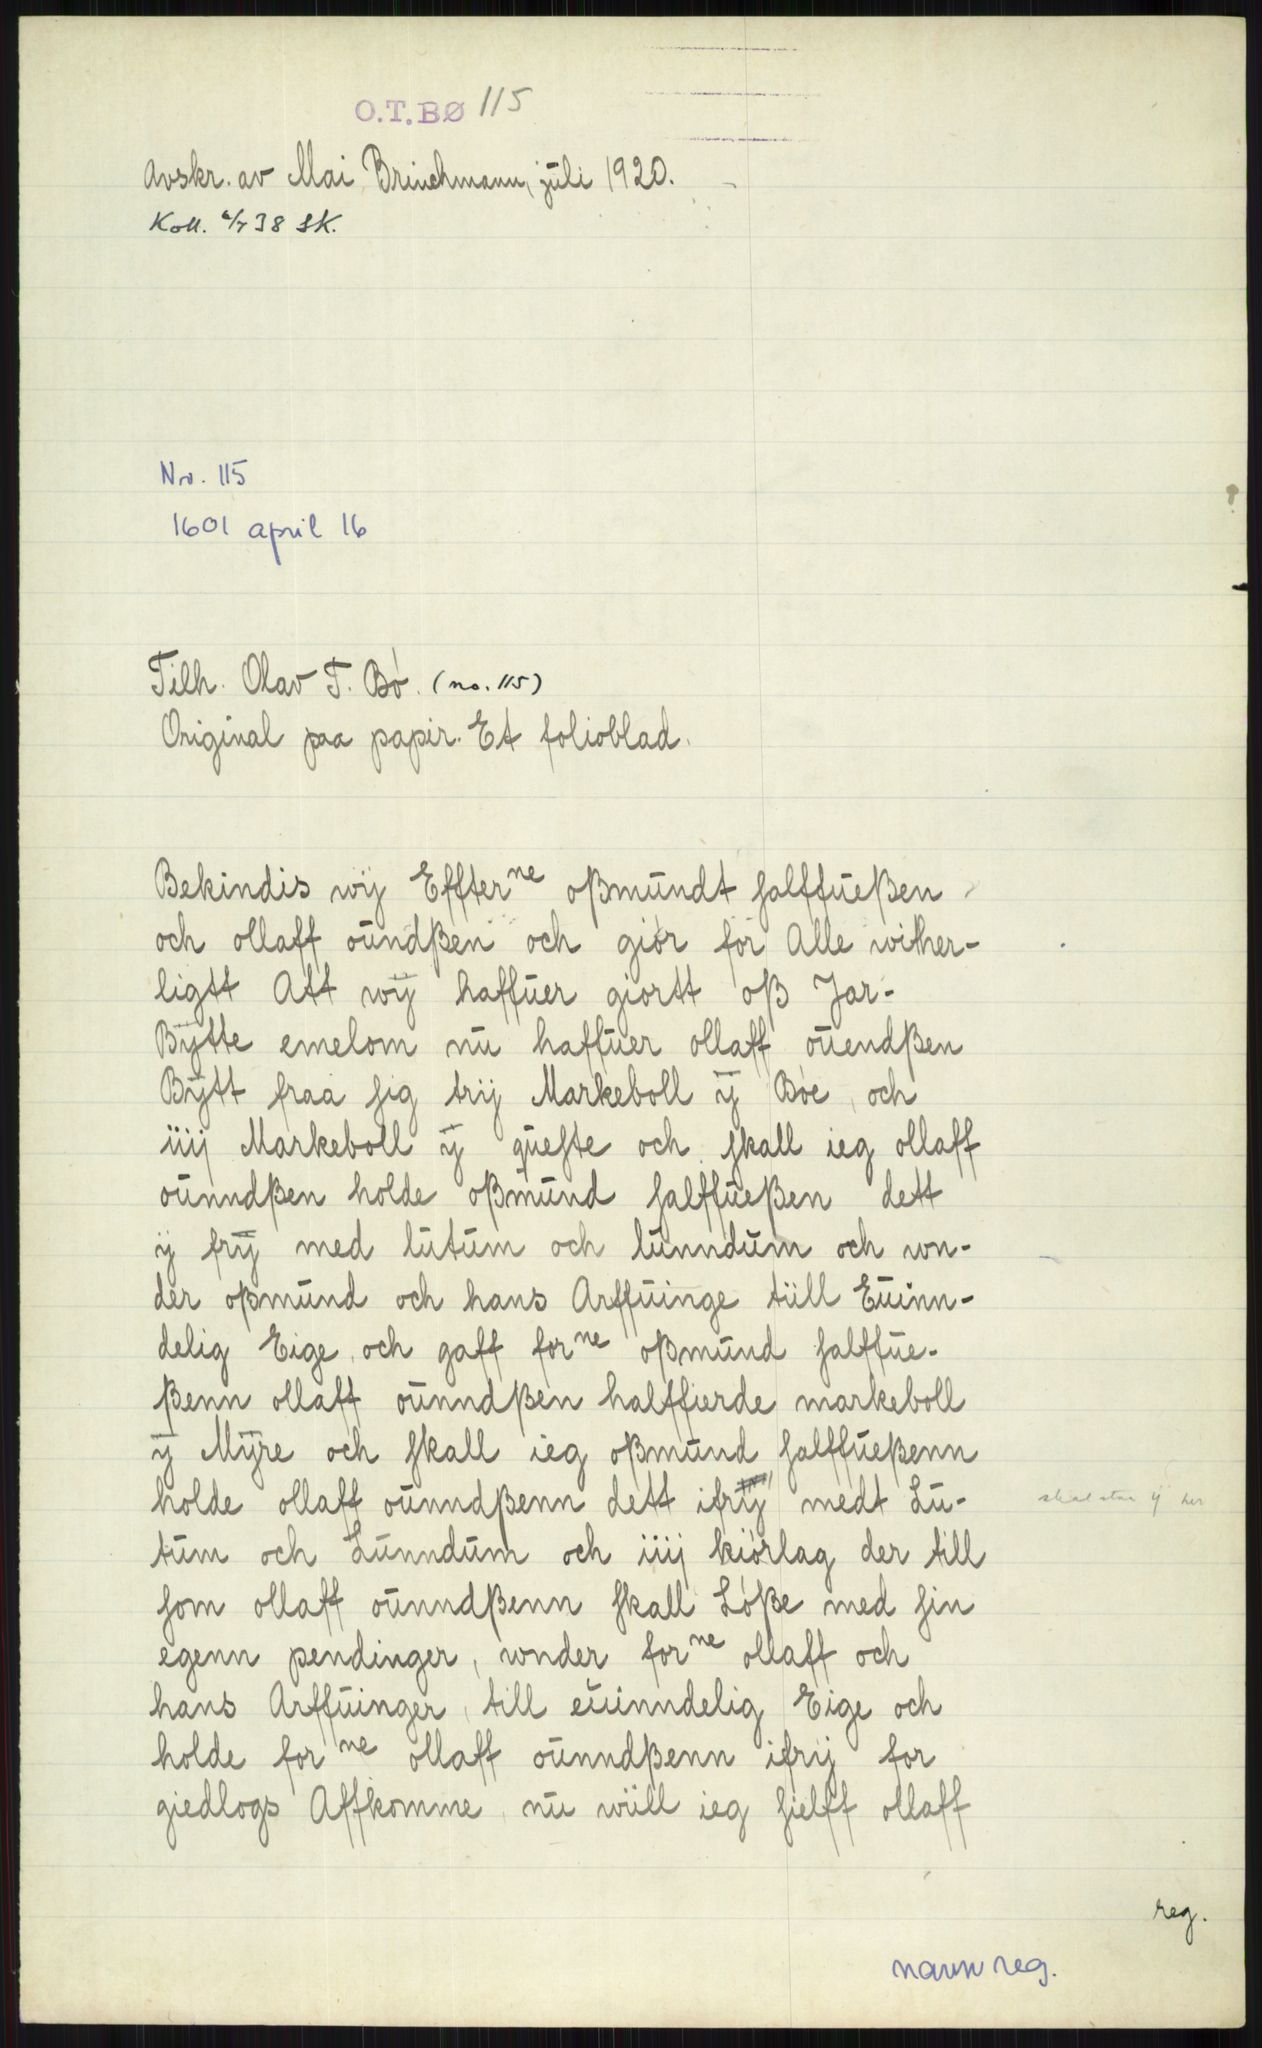 O.T.BØ 115
Avskr. av Mai Brinchmann, juli 1920.
Koll. 6/7 38 SK.
Nr. 115
1601 april 16
Tilh. Olav T. Bø. (no. 115)
Original paa papir. Et folioblad.
Bekindis wÿ Effterne oßmundt halffueßen
och ollaff oundßen och giór fór Alle wither-
ligtt Att wÿ haffuer giortt oß Jar-
Bÿtte emelom nu haffuer ollaff ouendßen
Bÿtt fraa sig trij Markeboll ÿ Bóe, och
iiij Markeboll ÿ queste och skall ieg ollaff
ounndßen holde oßmund halffueßen dett
ÿ frÿ med lutum och lunndum och wn-
der oßmund och hans Arffuinge tiill Euinn-
delig Eige, och gaff forne oßmund halffue-
ßenn ollaff ounndßen halffierde markeboll
ÿ Mÿre och skall ieg oßmund halffueßenn
holde ollaff ounndßenn dett ifrÿ medt Lu-
skal staa ÿ her
tum och Lunndum och iiij kiórlag der till
som ollaff ounndßenn skall Lóße med sin
egenn pendinger, wnder forne ollaff och
hans Arffuinger, till euinndelig Eige och
holde forne ollaff ounndßenn ifrij for
giedlogs Affkomme, nu wiill ieg sielff ollaff
reg.
navnreg.